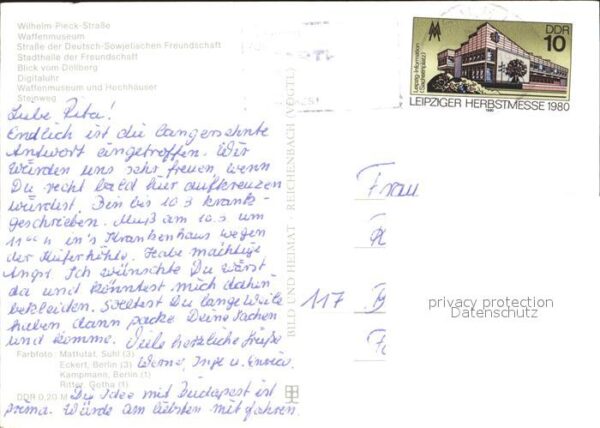 Wilhelm-Pieck-Straße
Waffenmuseum
Straße der Deutsch-Sowjetischen Freundschaft
Stadthalle der Freundschaft
Blick vom Döllberg
Digitaluhr
Waffenmuseum und Hochhäuser
Steinweg
Liebe Rita!
Endlich ist die langersehnte
Antwort eingetroffen. Wir
würden uns sehr freuen, wenn
Du recht bald hier aufkreuzen
würdest. Bin bis 10.3 krank-
geschrieben. Muß am 10.3 um
11 h in's Krankenhaus wegen
der Kieferhöhle. Habe mächtige
Angst. Ich wünschte Du wärst
da und könntest mich dahin
bekleiden. Solltest Du lange Weile
haben, dann packe Deine Sachen
und komme. Viele herzliche Grüße
Werne, u. Enrico.
Die Idee mit Budapest ist
prima. Würde am liebsten mitfahren.
Farbfoto: Mathutat, Suhl (3)
Eckert, Berlin (3)
Kampmann, Berlin (1)
Ritter, Gotha (1)
DDR 0,20 M
BILD UND HEIMAT · REICHENBACH (VOGTL)
DDR
10
Leipzig-Information
(Sachsenplatz)
LEIPZIGER HERBSTMESSE 1980
1980
Frau
117 B
privacy protection
Datenschutz